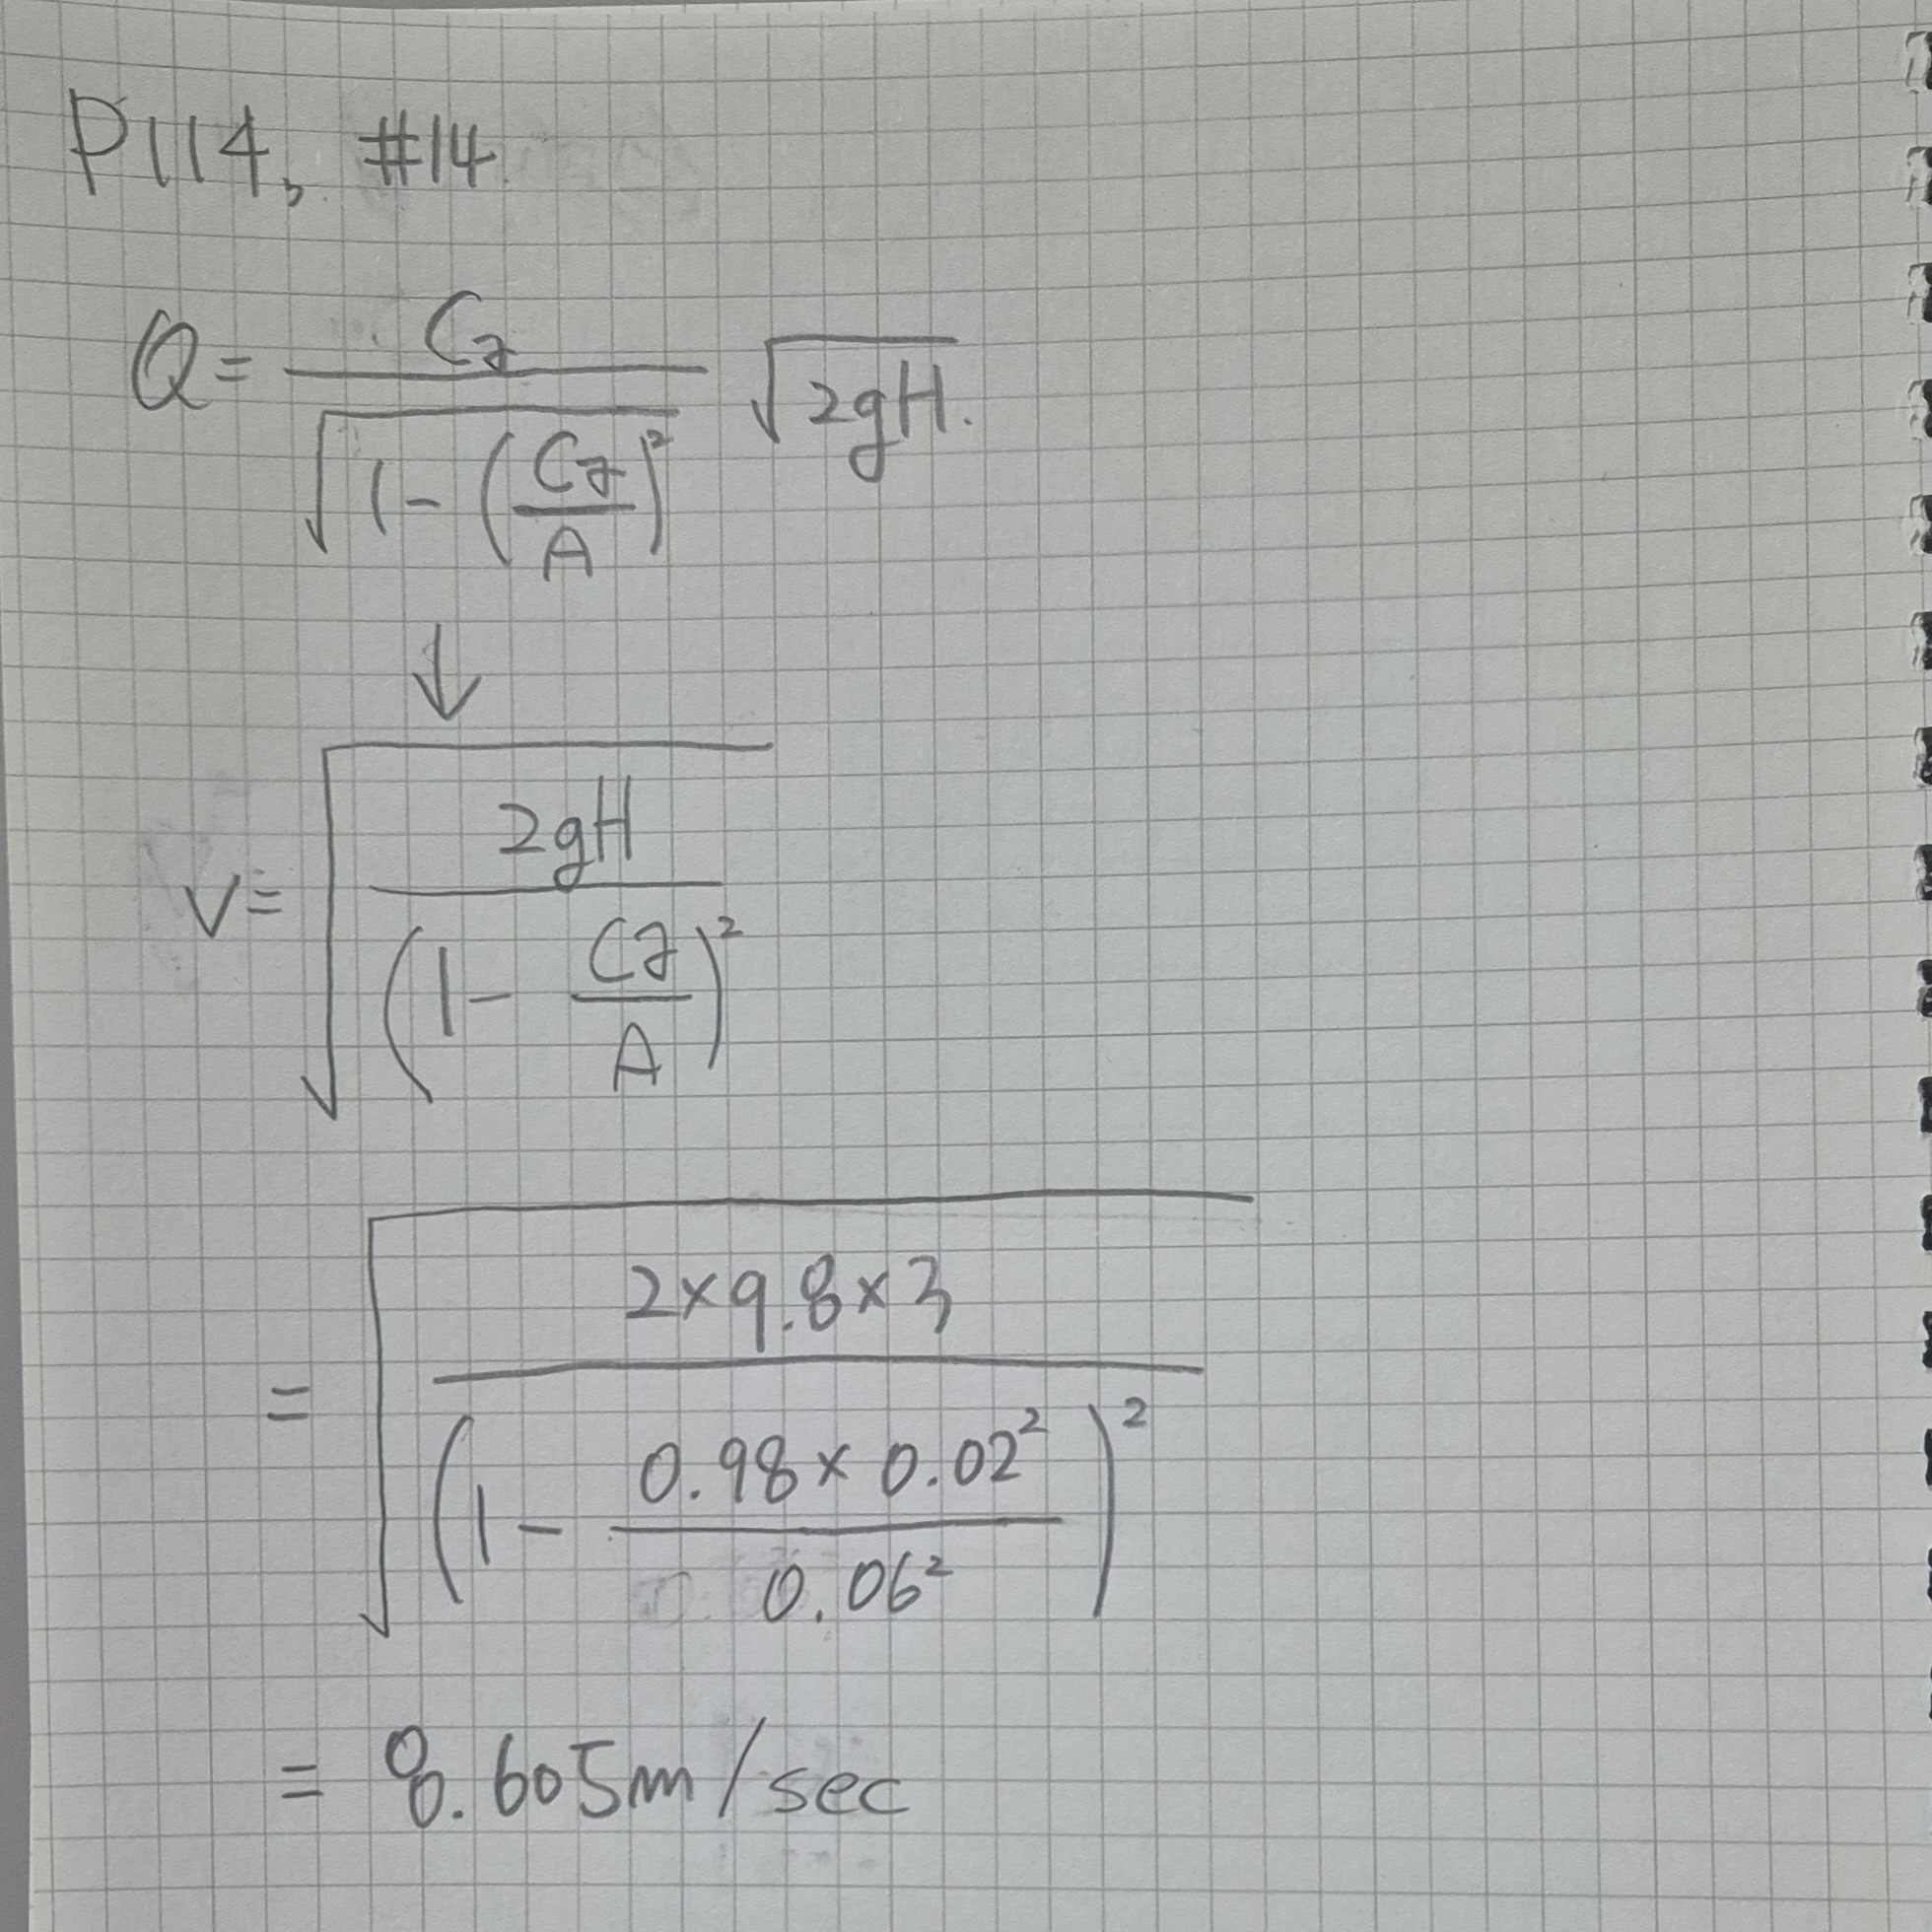 P114, #14.
Q = \frac{Ca}{\sqrt{1 - \left(\frac{Ca}{A}\right)^2}} \sqrt{2gH}.
↓
V = \sqrt{\frac{2gH}{\left(1 - \frac{Ca}{A}\right)^2}}
= \sqrt{\frac{2×9.8×3}{\left(1 - \frac{0.98×0.02^2}{0.06^2}\right)^2}}
= 8.605m/sec